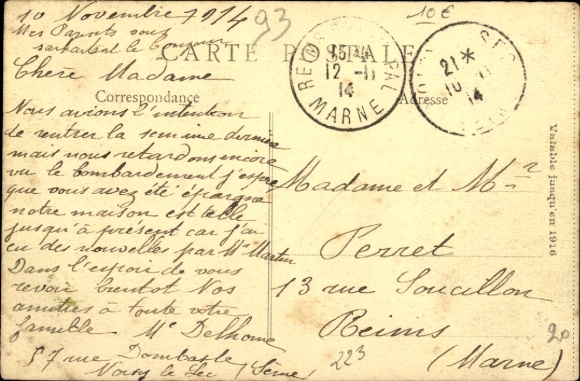 10 Novembre 1914
Mes Parents vous
souhaitent le bonjour
93
10€
CARTE POSTALE
Correspondance
Adresse
REIMS PAL
15
12 -11
14
MARNE
21 *
10 11
14
Chère Madame
Nous avions l'intention
de rentrer la semaine dernière
mais nous retardons encore
vu le bombardement j'espère
que vous avez été épargné
notre maison est elle
jusqu'à présent car j'ai
eu des nouvelles par Me Martin
Dans l'espoir de vous
revoir bientôt Nos
amitiés à toute votre
famille Me Delhome
57 rue Dombasle
Noisy le Sec (Seine)
Madame et Mr
Perret
13 rue Soucillon
Reims
(Marne)
Valable jusqu'en 1916
223
20